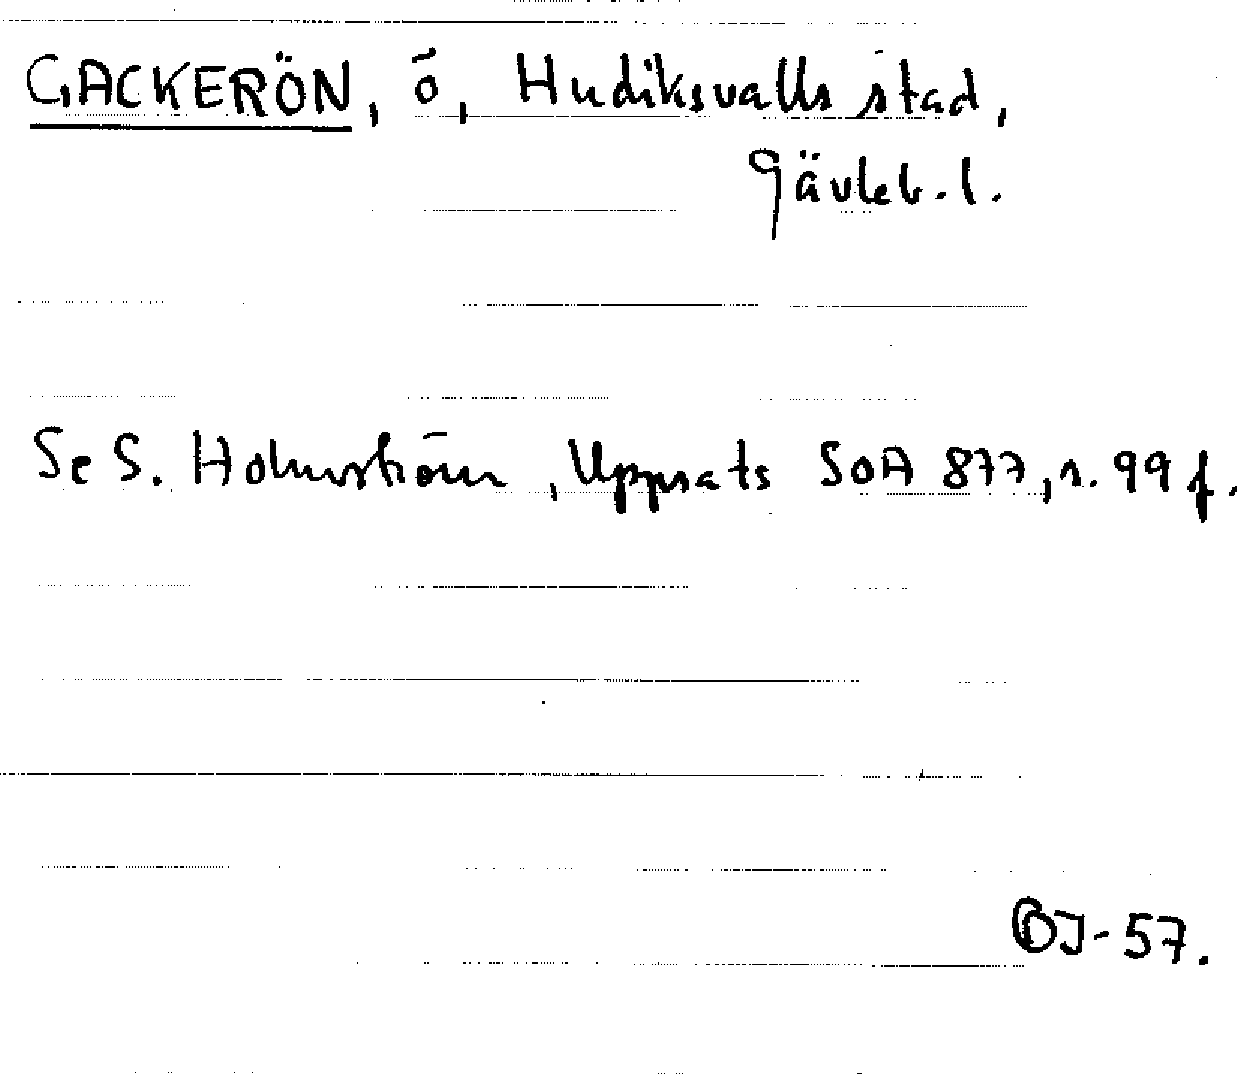 GACKERÖN, ö, Hudiksvalls stad,
Gävleb. l.
Se S. Holmström, Uppsats SOA 877, s. 99 f.
BJ-57.